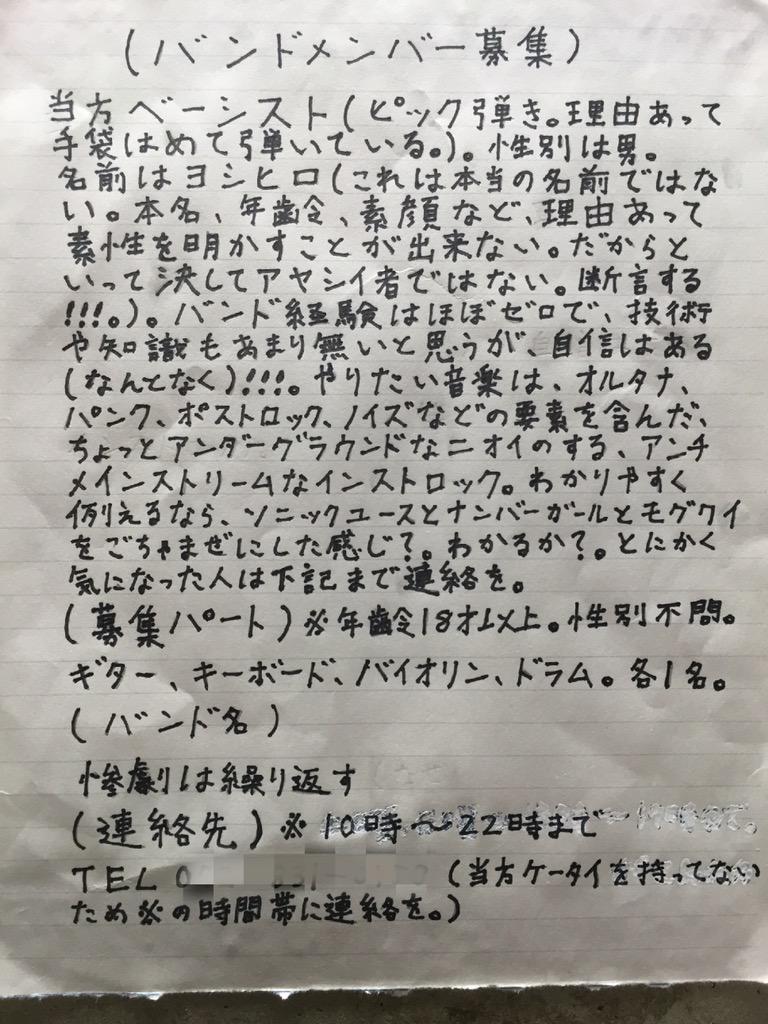 (バンドメンバー募集)
当方ベーシスト(ピック弾き。理由あって
手袋はめて弾いている。)。性別は男。
名前はヨシヒロ(これは本当の名前ではな
い。本名、年齢、素顔など、理由あって
素性を明かすことが出来ない。だからと
いって決してアヤシイ者ではない。断言する
!!!。)。バンド経験はほぼゼロで、技術
や知識もあまり無いと思うが、自信はある
(なんとなく)!!!。やりたい音楽は、オルタナ、
パンク、ポストロック、ノイズなどの要素を含んだ、
ちょっとアンダーグラウンドなニオイのする、アンチ
メインストリームなインストロック。わかりやすく
例えるなら、ソニックユースとナンバーガールとモグワイ
をごちゃまぜにした感じ?。わかるか?。とにかく
気になった人は下記まで連絡を。
(募集パート)※年齢18才以上。性別不問。
ギター、キーボード、バイオリン、ドラム。各1名。
(バンド名)
惨劇は繰り返す
(連絡先)※10時〜22時まで
TEL (当方ケータイを持ってない
ため※の時間帯に連絡を。)